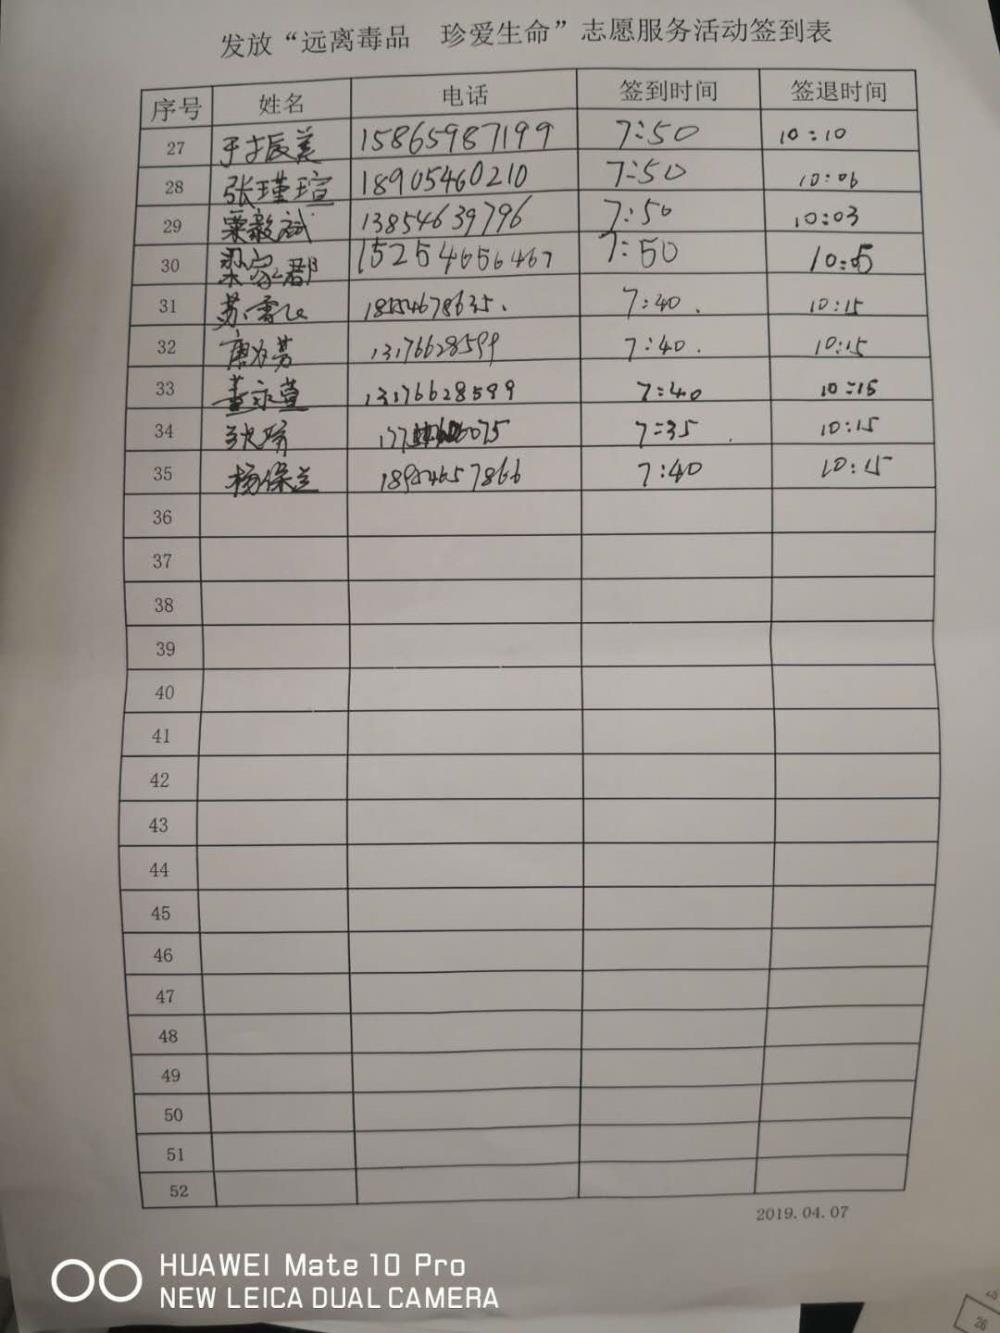 发放“远离毒品 珍爱生命”志愿服务活动签到表
序号 姓名 电话 签到时间 签退时间
27 于振美 15865987199 7:50 10:10
28 张瑾瑄 18905460210 7:50 10:06
29 栗毅斌 13854639796 7:50 10:03
30 梁家郡 15254656467 7:50 10:05
31 苏雪飞 7:40 10:15
32 13176628599 7:40 10:15
33 董永萱 13176628599 7:40 10:15
34 7:35 10:15
35 杨保兰 18954657866 7:40 10:15
36
37
38
39
40
41
42
43
44
45
46
47
48
49
50
51
52
2019.04.07
HUAWEI Mate 10 Pro
NEW LEICA DUAL CAMERA
26